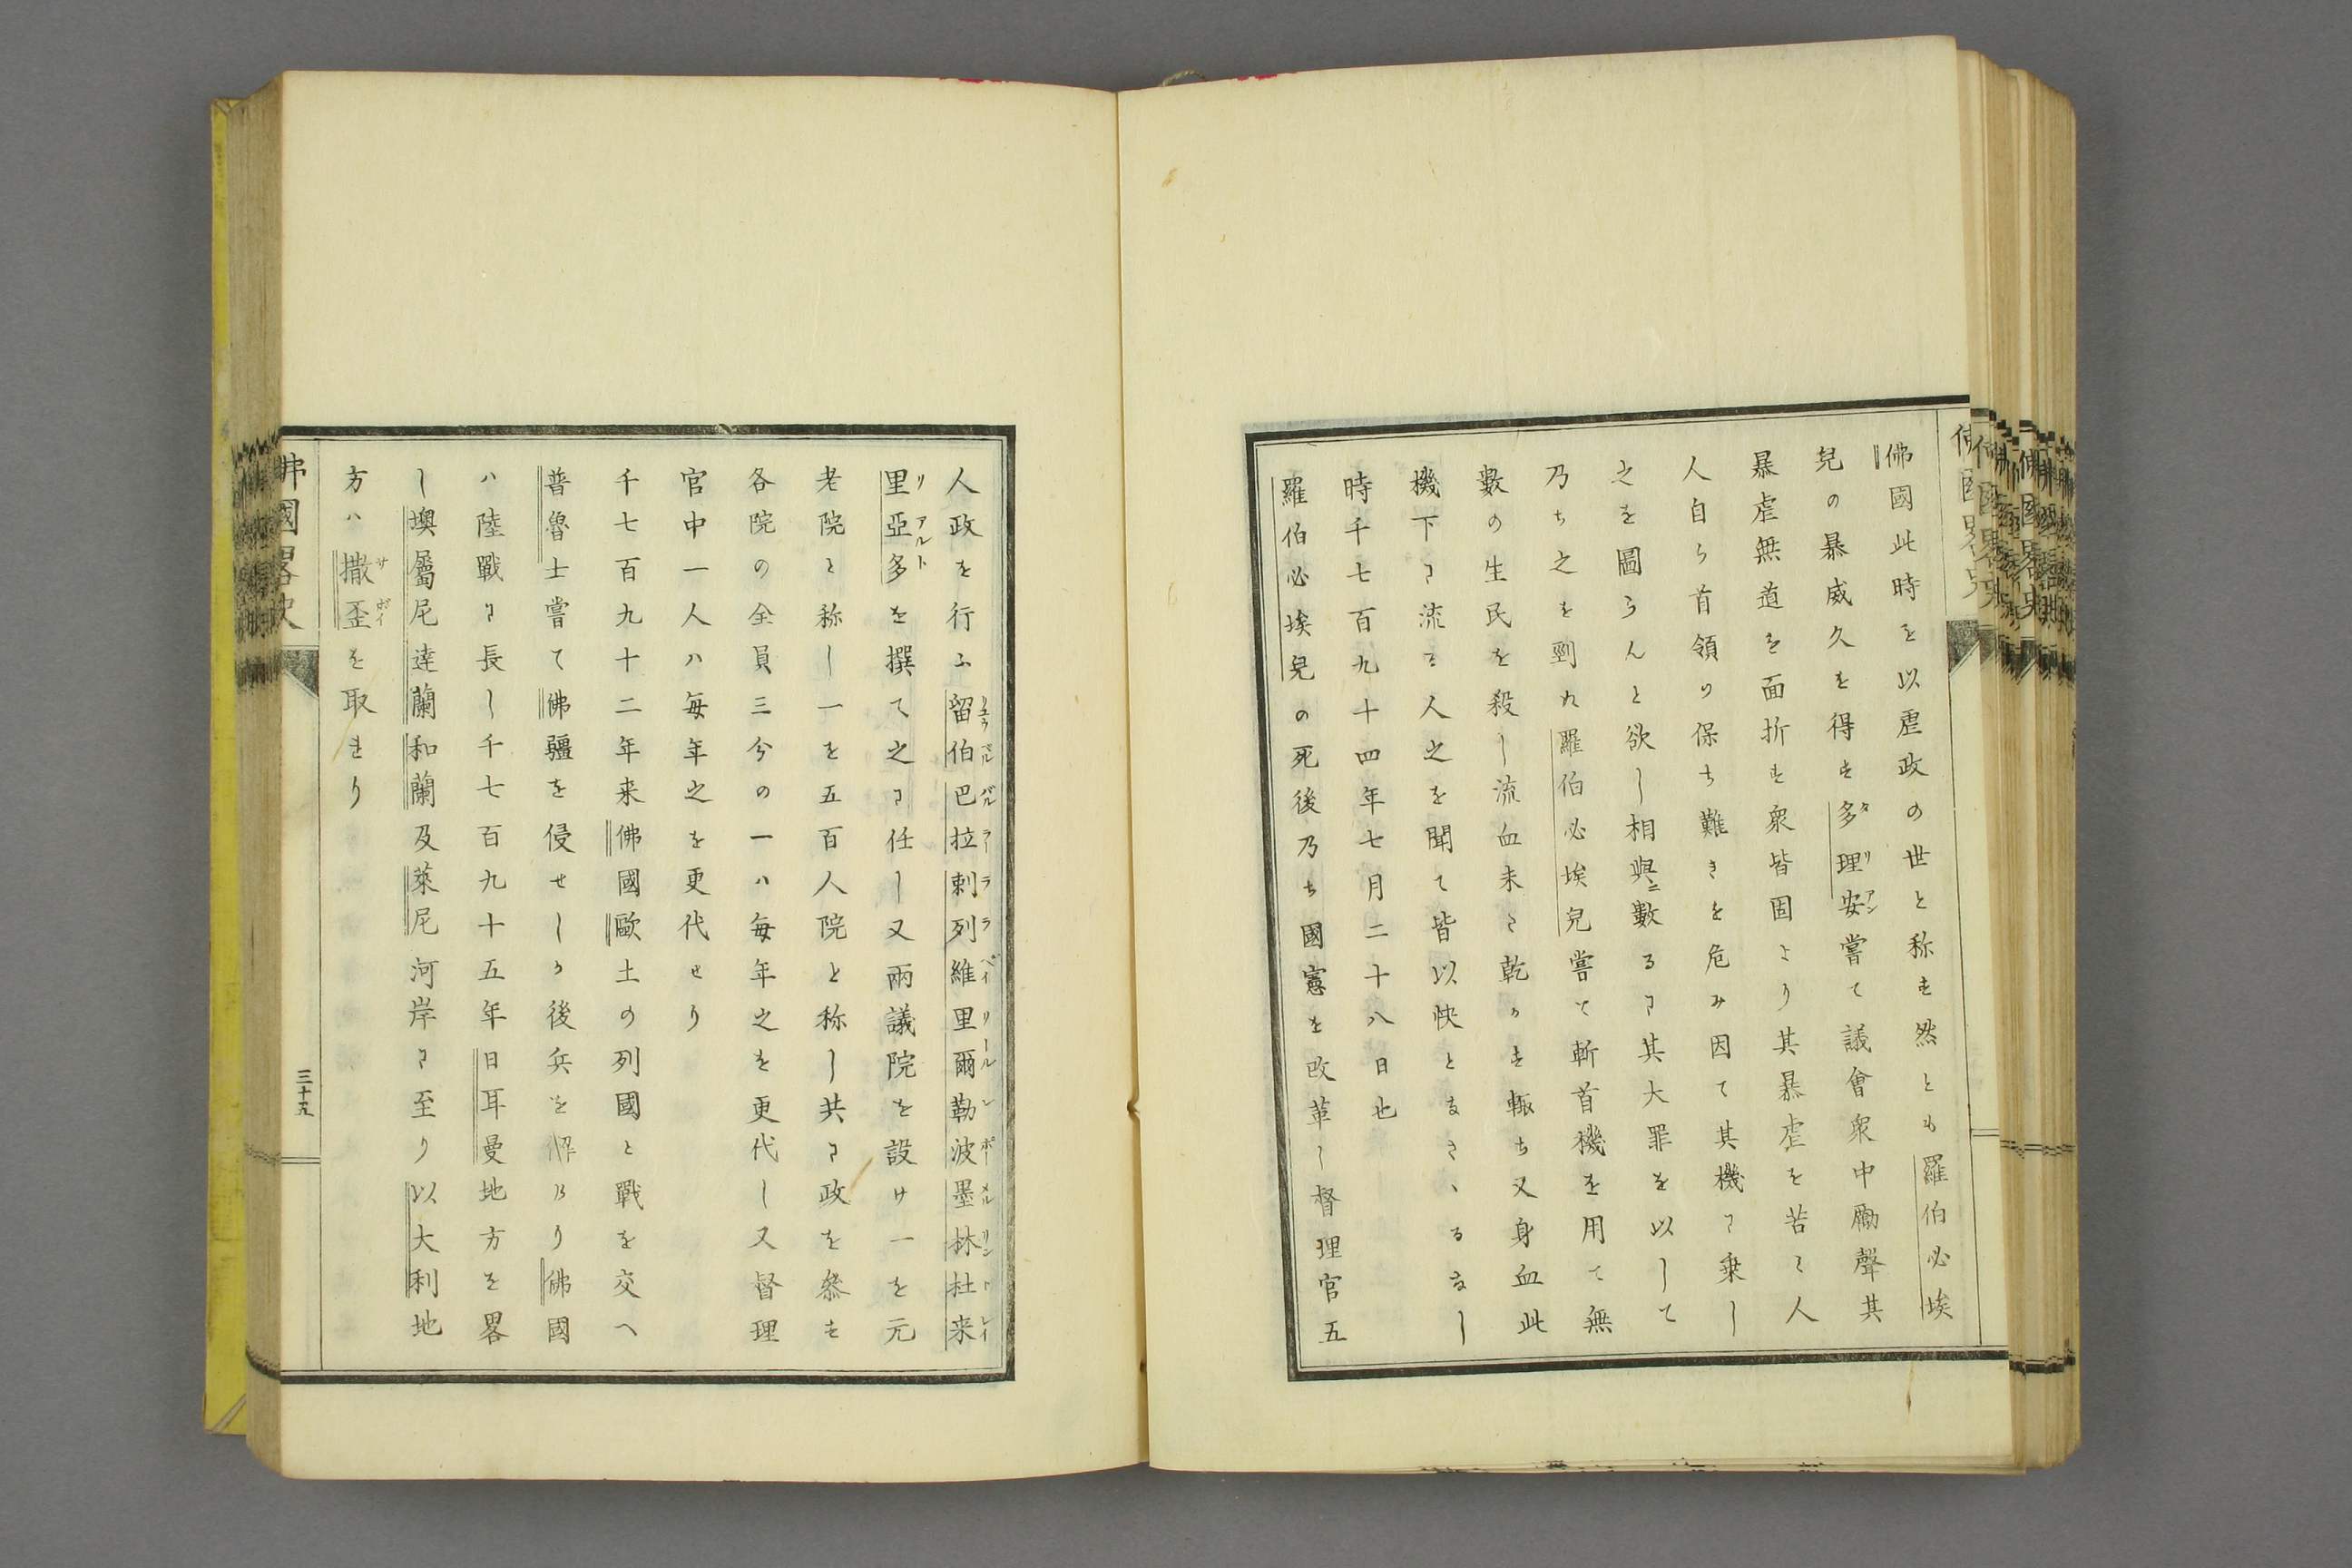 佛國此時を以虐政の世と称す然とも羅伯必埃
兒の暴威久を得す多理安嘗て議會衆中勵聲其
暴虐無道を面折す衆皆固より其暴虐を苦み人
人自ら首領の保ち難きを危み因て其機に乗し
之を圖らんと欲し相與ニ數るに其大罪を以して
乃ち之を剄れ羅伯必埃兒嘗て斬首機を用て無
數の生民を殺し流血未た乾かす輙ち又身血此
機下に流る人之を聞て皆以快となさゝるなし
時千七百九十四年七月二十八日也
羅伯必埃兒の死後乃ち國憲を改革し督理官五
人政を行ふ留伯巴拉剌列維里爾勒波墨林杜来
里亞多を撰て之に任し又兩議院を設け一を元
老院と称し一を五百人院と称し共に政を參す
各院の全員三分の一ハ毎年之を更代し又督理
官中一人ハ毎年之を更代せり
千七百九十二年来佛國歐土の列國と戰を交へ
普魯士嘗て佛疆を侵せしか後兵を解けり佛國
ハ陸戰に長し千七百九十五年日耳曼地方を畧
し墺屬尼達蘭和蘭及萊尼河岸に至り以大利地
方ハ撒歪を取せり
佛國畧史
三十五